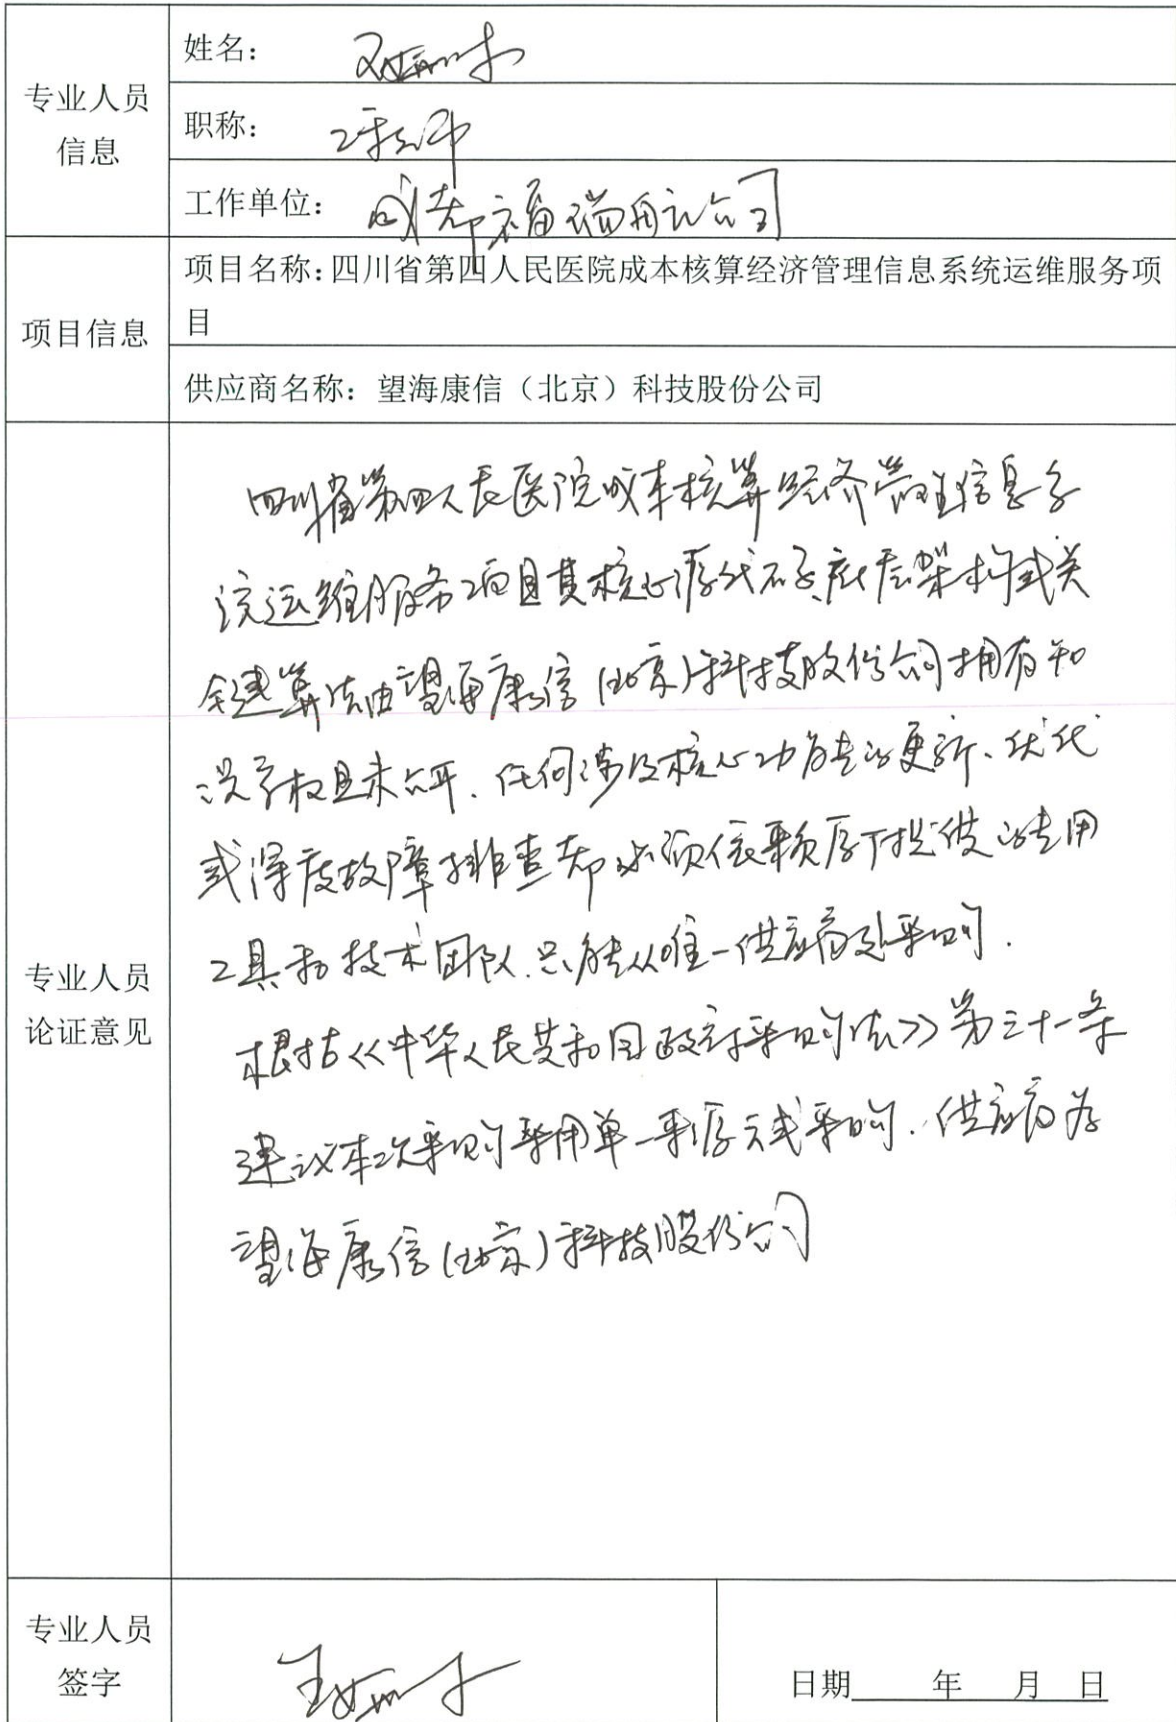 专业人员
信息
姓名：
职称： 工程师
工作单位： 成都福瑞通讯公司
项目信息
项目名称：四川省第四人民医院成本核算经济管理信息系统运维服务项
目
供应商名称：望海康信（北京）科技股份公司
专业人员
论证意见
四川省第四人民医院成本核算经济管理信息系
统运维服务项目其核心源代码、底层架构或关
键算法由望海康信(北京)科技股份公司拥有知
识产权且未公开、任何涉及核心功能的更新、优化
或深度故障排查都必须依赖原厂提供的专用
工具和技术团队、只能从唯一供应商处采购.
根据《中华人民共和国政府采购法》第三十一条
建议本次采购采用单一来源方式采购. 供应商为
望海康信(北京)科技股份公司
专业人员
签字
日期 年 月 日